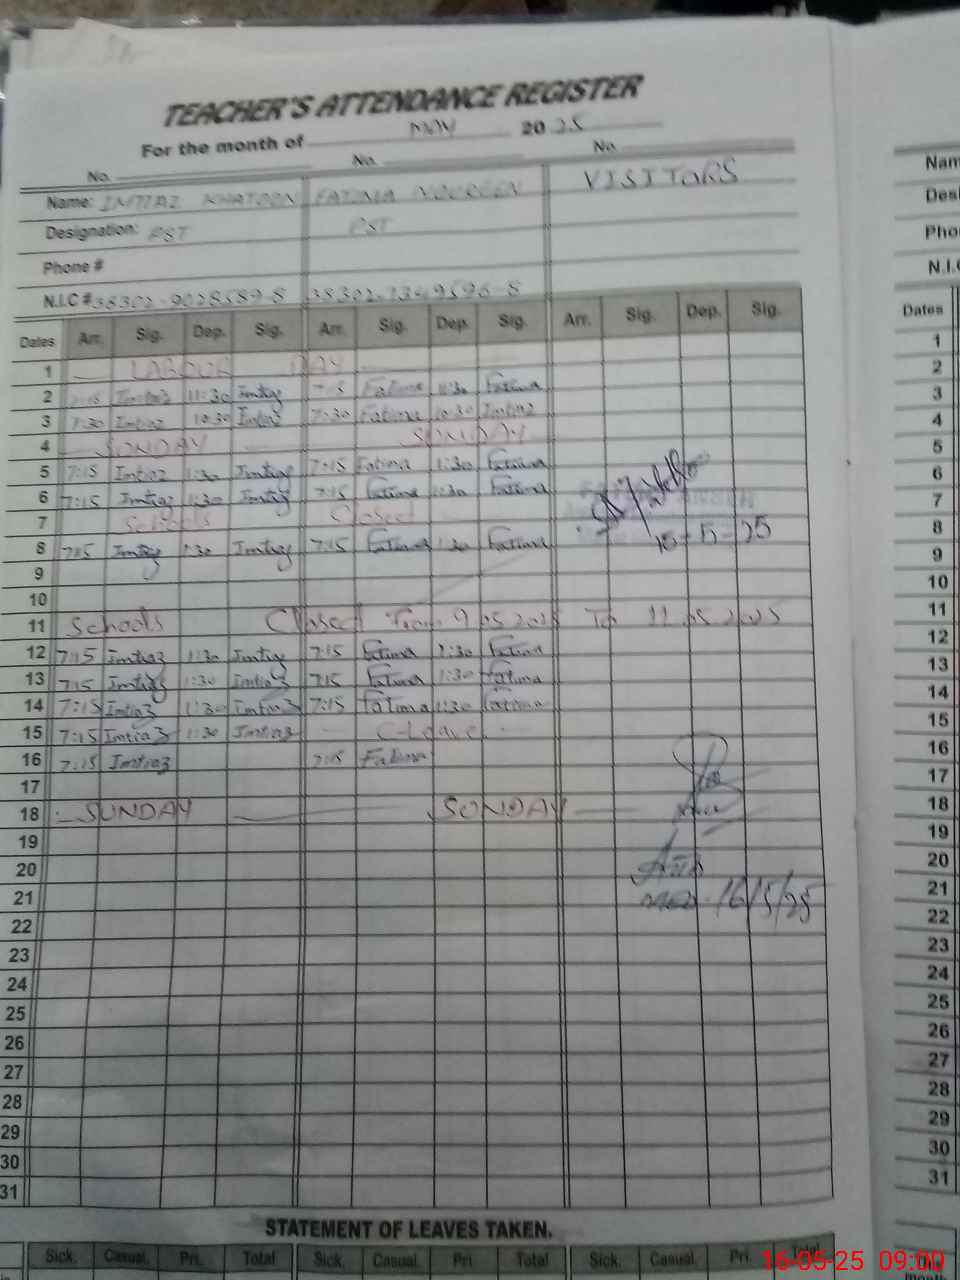 TEACHER'S ATTENDANCE REGISTER
For the month of MAY 2025
No. No. No.
Name: IMTIAZ KHATOON FATIMA NOUREEN VISITORS
Designation: PST PST
Phone #
N.I.C # 38302-9028589-8 38302-1349596-8
Dates Arr. Sig. Dep. Sig. Arr. Sig. Dep. Sig. Arr. Sig. Dep. Sig.
1 LABOUR DAY
2 7:15 Imtiaz 11:30 Imtiaz 7:15 Fatima 11:30 Fatima
3 7:30 Imtiaz 10:30 Imtiaz 7:30 Fatima 10:30 Imtiaz
4 SUNDAY SUNDAY
5 7:15 Imtiaz 1:30 Imtiaz 7:15 Fatima 1:30 Fatima
6 7:15 Imtiaz 1:30 Imtiaz 7:15 Fatima 1:30 Fatima
7 Schools Closed
8 7:15 Imtiaz 1:30 Imtiaz 7:15 Fatima 1:30 Fatima 15-5-25
9
10
11 Schools Closed From 9.05.2025 To 11.05.2025
12 7:15 Imtiaz 1:30 Imtiaz 7:15 Fatima 1:30 Fatima
13 7:15 Imtiaz 1:30 Imtiaz 7:15 Fatima 1:30 Fatima
14 7:15 Imtiaz 1:30 Imtiaz 7:15 Fatima 1:30 Fatima
15 7:15 Imtiaz 1:30 Imtiaz C-Leave
16 7:15 Imtiaz 7:15 Fatima
17
18 SUNDAY SUNDAY
19
20
21 16/5/25
22
23
24
25
26
27
28
29
30
31
STATEMENT OF LEAVES TAKEN.
Sick. Casual. Pri. Total Sick. Casual. Pri Total Sick. Casual. Pri. Total
Nam
Desi
Pho
N.I.C
Dates
1
2
3
4
5
6
7
8
9
10
11
12
13
14
15
16
17
18
19
20
21
22
23
24
25
26
27
28
29
30
31
16-05-25 09:00